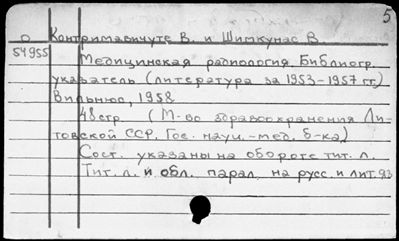 5
О Контримавичуте В. и Шимкунас В
54955
Медицинская радиология. Библиогр.
указатель (литература за 1953-1957 гг.)
Вильнюс, 1958
48 стр. (М-во здравоохранения Ли-
товской ССР, Гос. научн.-мед. б-ка)
Сост. указаны на обороте тит. л.
Тит. л. и обл. парал. на русс. и лит. яз